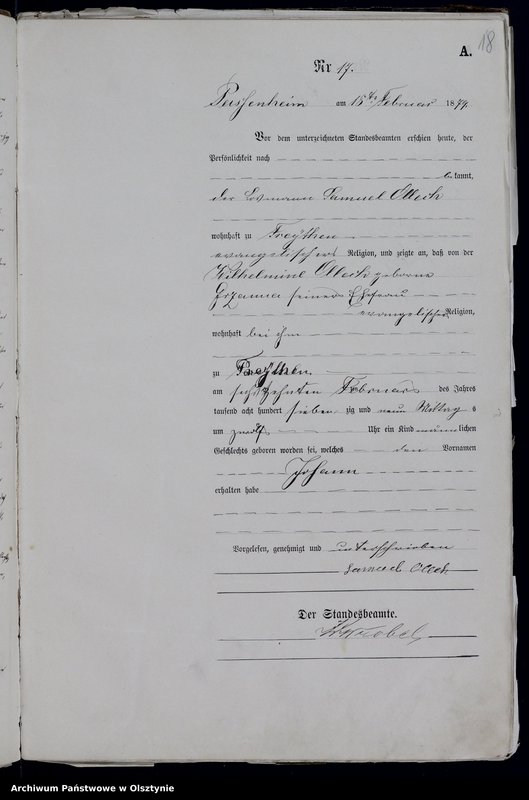 18
A.
Nr 17.
am 18ten Februar 1879
Vor dem unterzeichneten Standesbeamten erschien heute, der
Persönlichkeit nach
bekannt,
der Losmann Samuel Olleck
wohnhaft zu Freythen
evangelischer Religion, und zeigte an, daß von der
Wilhelmine Olleck geborne
seiner Ehefrau
evangelischer Religion,
wohnhaft bei ihm
zu Freythen
am Februar des Jahres
tausend acht hundert siebenzig und neun Mittags
um zwölf Uhr ein Kind männlichen
Geschlechts geboren worden sei, welches den Vornamen
Johann
erhalten habe
Vorgelesen, genehmigt und unterschrieben
Samuel Olleck
Der Standesbeamte.
Archiwum Państwowe w Olsztynie